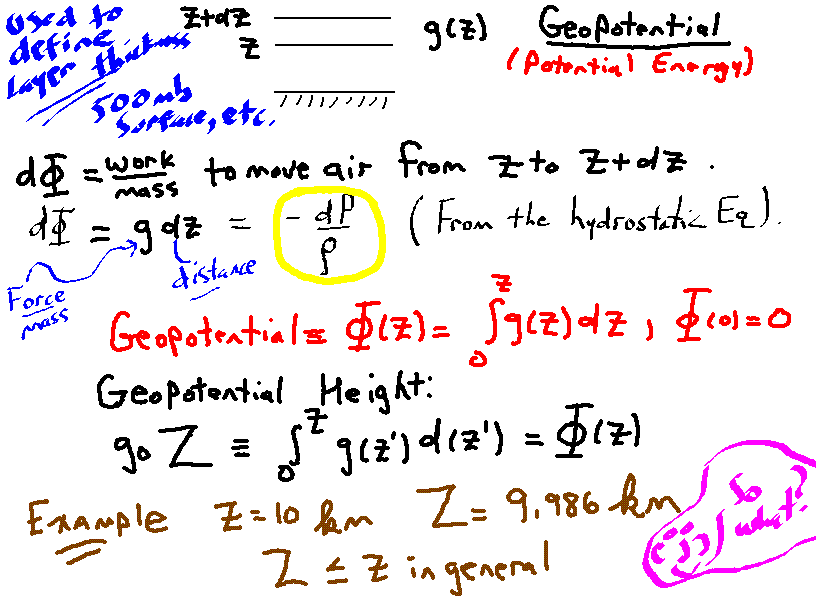 Used to
define
Layer thickness
500mb
Surface, etc.
z+dz
z
g(z)
Geopotential
(Potential Energy)
dΦ = work/mass to move air from z to z+dz.
dΦ = g dz = -dP/ρ (From the hydrostatic Eq).
Force
mass
distance
Geopotential ≡ Φ(z) = ∫₀ᶻ g(z) dz, Φ(0)=0
Geopotential Height:
g₀ Z ≡ ∫₀ᶻ g(z') d(z') = Φ(z)
Example z=10 km Z = 9.986 km
Z ≤ z in general
So
what?